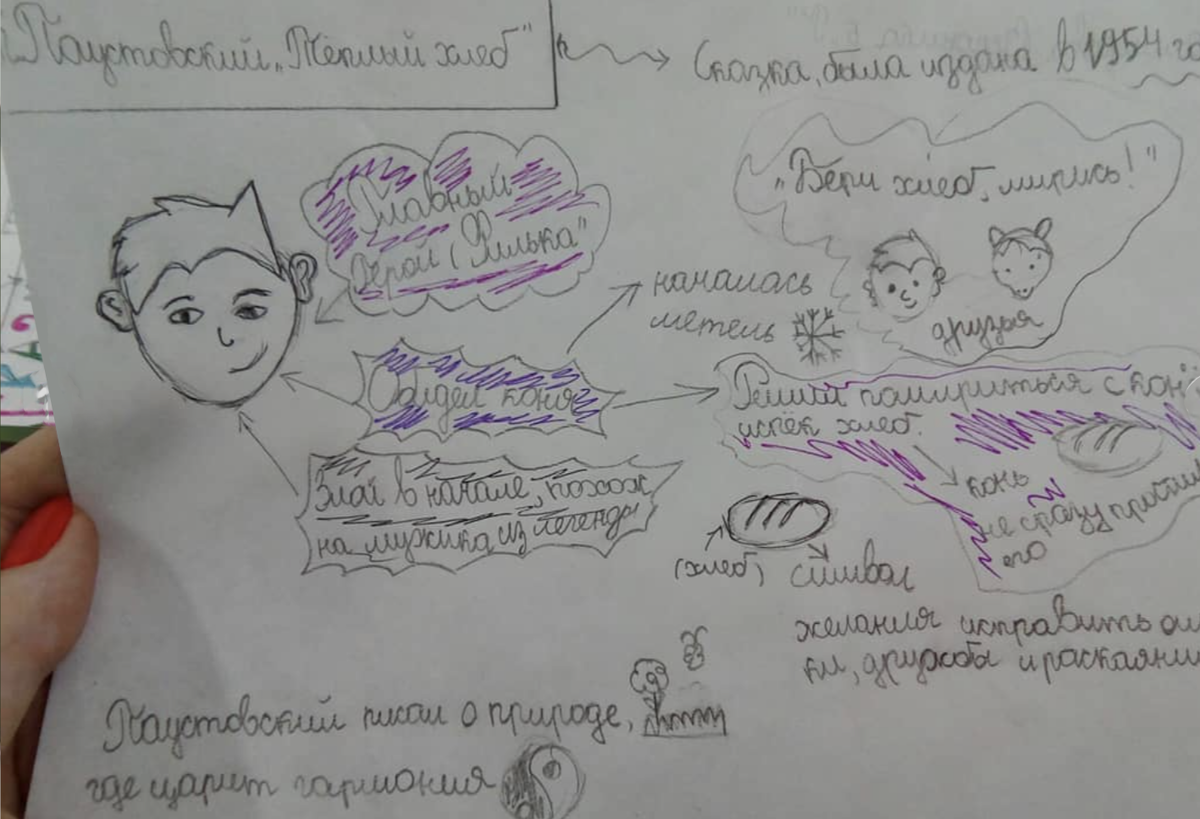 Паустовский „Тёплый хлеб"
Сказка, была издана в 1954 го
Главный
герой („Филька"
„Бери хлеб, мирись!"
друзья
началась
метель
Обидел коня
Решил помириться с кон
испёк хлеб.
конь
не сразу
его
Злой в начале, похож
на мужика из легенды
(хлеб)
символ
желания исправить ош
ки, дружбы и раскаяни
Паустовский писал о природе,
где царит гармония